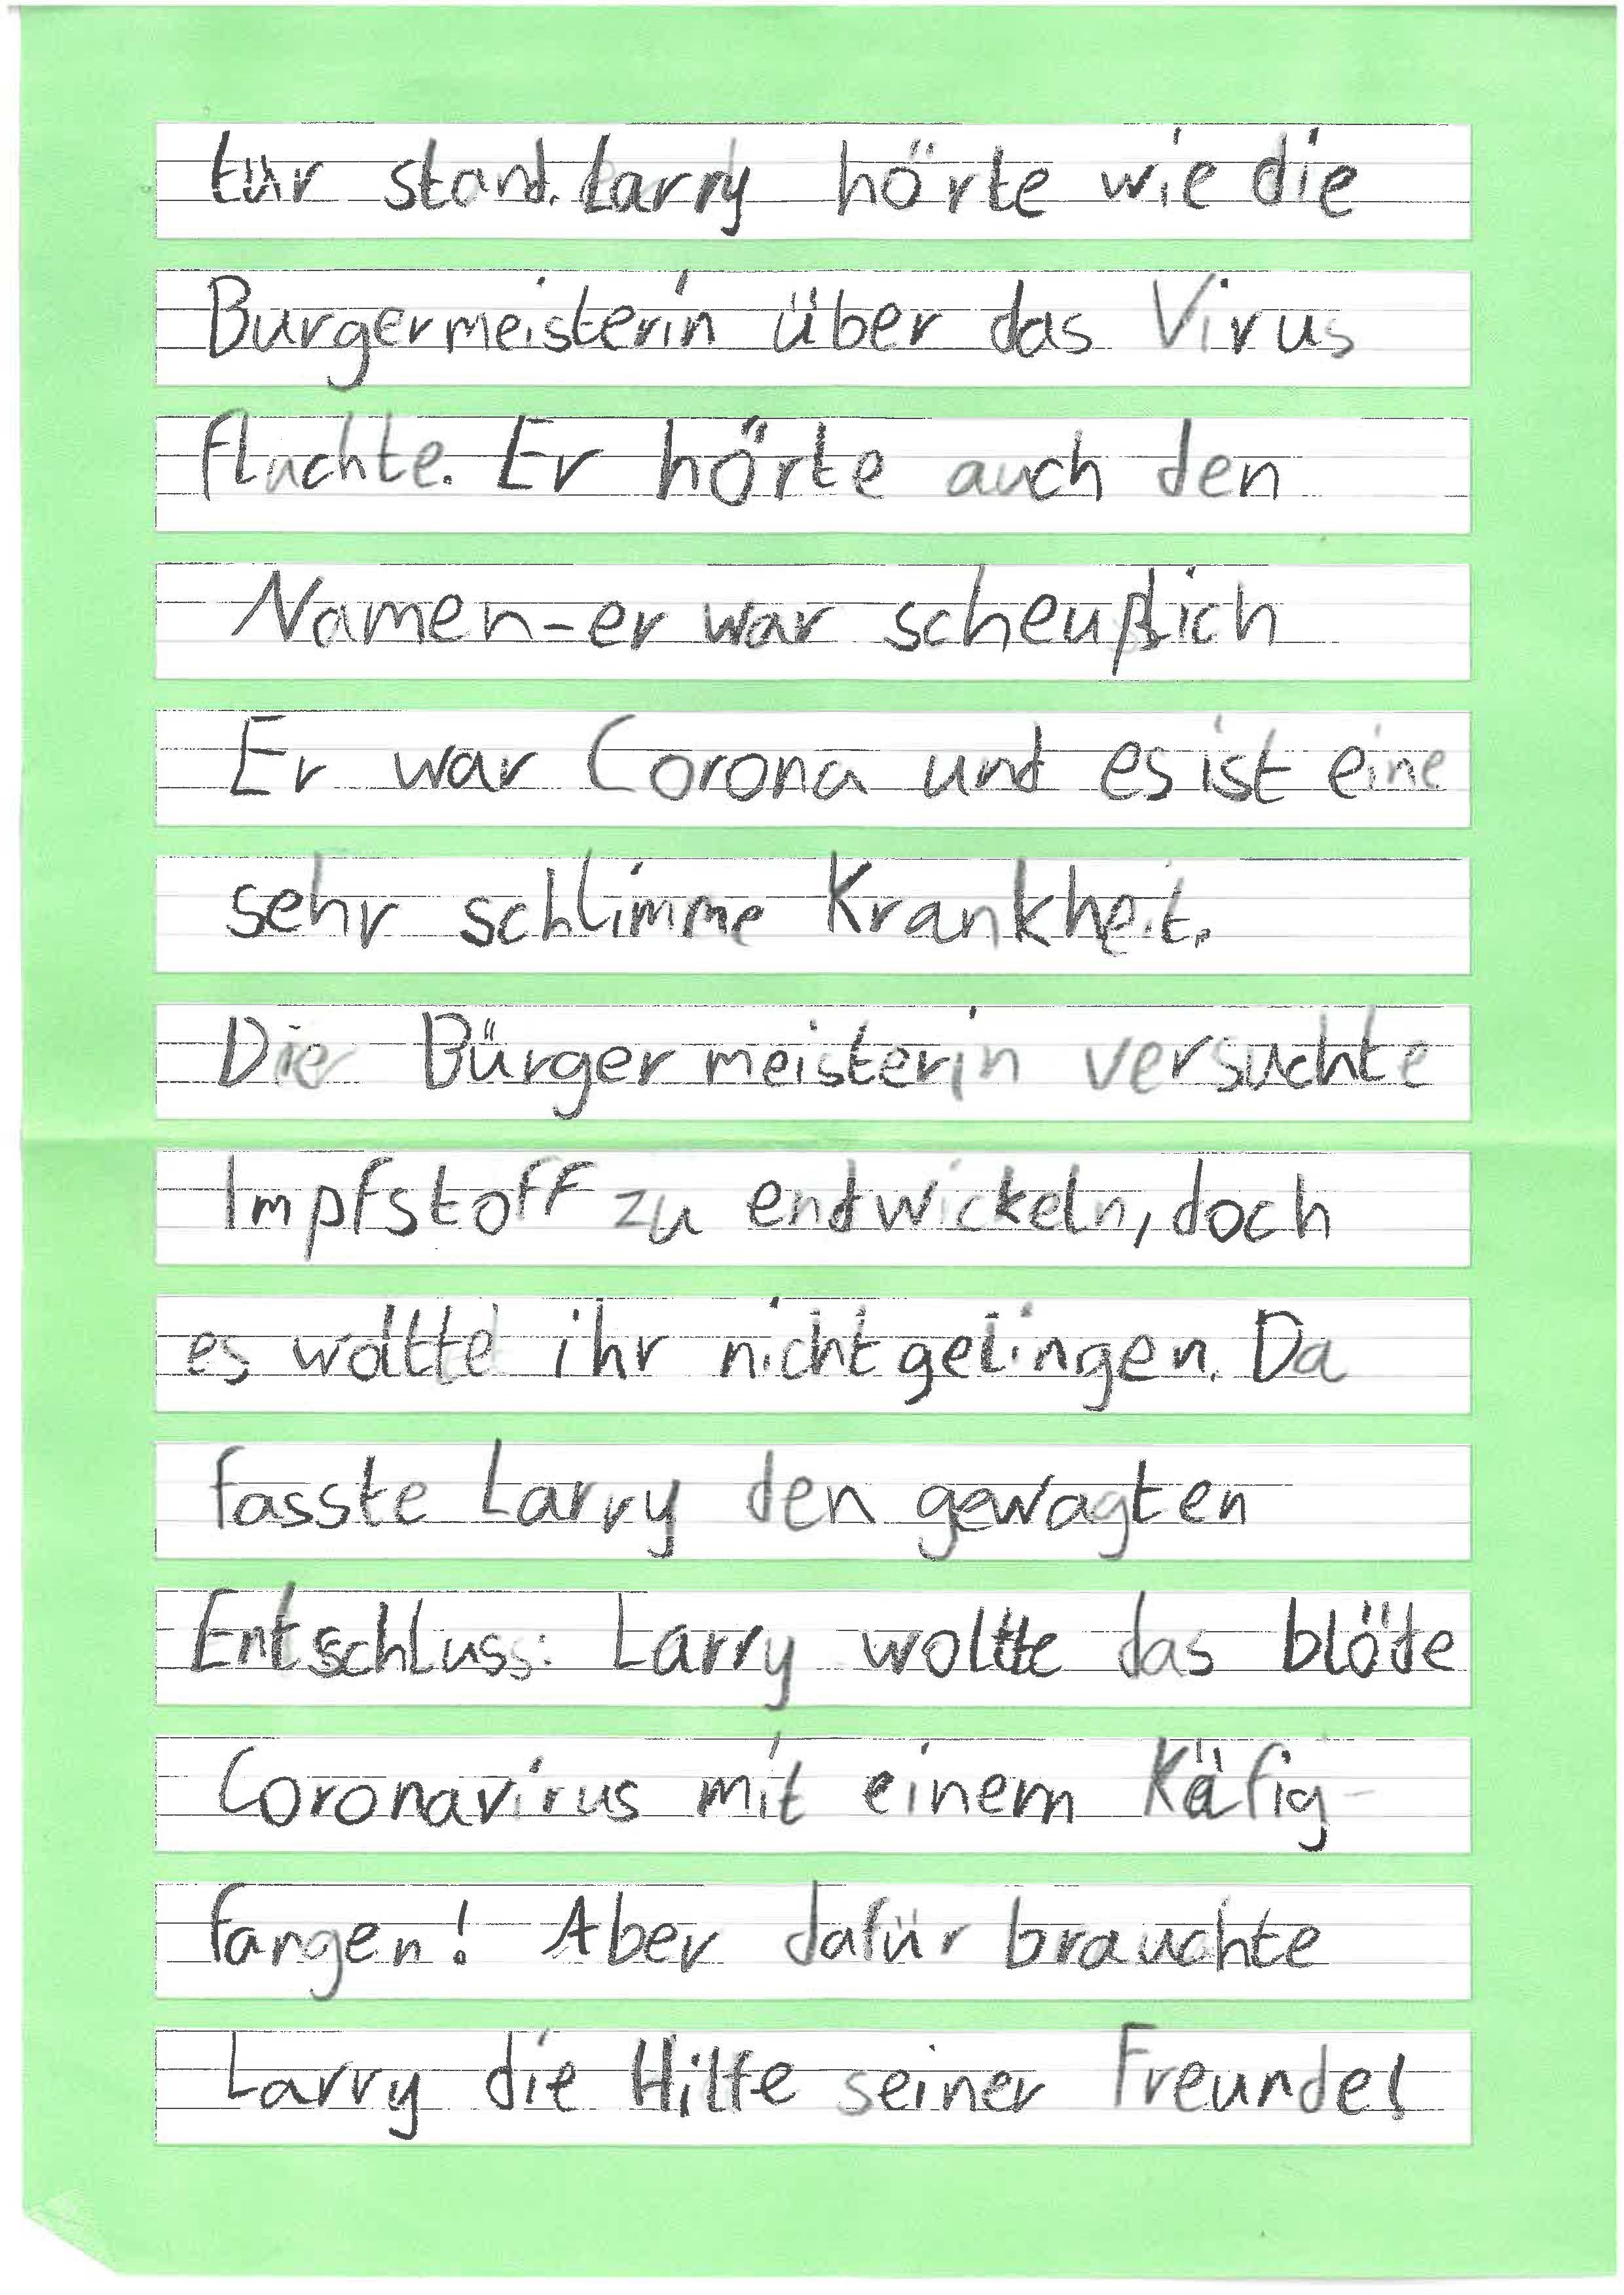 tür stand. Larry hörte wie die
Burgermeisterin über das Virus
fluchte. Er hörte auch den
Namen-er war scheußlich
Er war Corona und es ist eine
sehr schlimme Krankheit.
Die Bürgermeisterin versuchte
Impfstoff zu endwickeln, doch
es wollte ihr nicht gelingen. Da
fasste Larry den gewagten
Entschluss: Larry wollte das blöde
Coronavirus mit einem Käfig
fangen! Aber dafür brauchte
Larry die Hilfe seiner Freunde!